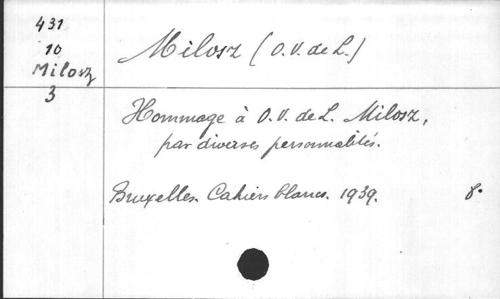 431
10
Milosz
3
Milosz (O.V. de L.)
Hommage à O.V. de L. Milosz,
par diverses personnalités.
Bruxelles. Cahiers blancs. 1939. 8°